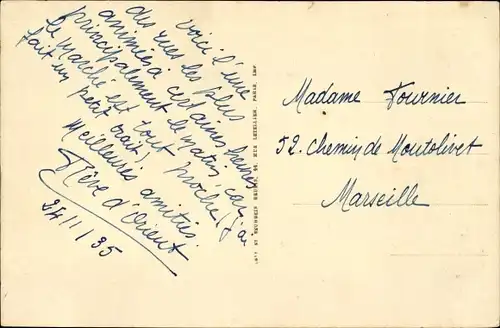 voici l'une
des rues les plus
animées à certaines heures
principalement le matin, car
le marché est tout proche (j'ai
fait un petit trait)
Meilleures amitiés.
Rêve d'Orient
24/1/35
Madame Fournier
52. Chemin de Montolivet
Marseille